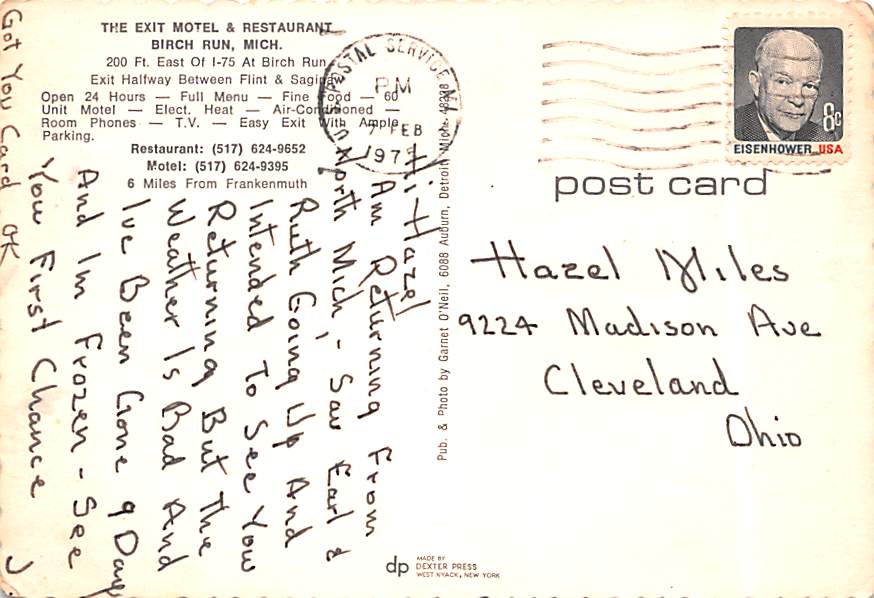 THE EXIT MOTEL & RESTAURANT
BIRCH RUN, MICH.
200 Ft. East Of I-75 At Birch Run
Exit Halfway Between Flint & Saginaw
Open 24 Hours — Full Menu — Fine Food — 60
Unit Motel — Elect. Heat — Air-Conditioned —
Room Phones — T.V. — Easy Exit With Ample
Parking.
Restaurant: (517) 624-9652
Motel: (517) 624-9395
6 Miles From Frankenmuth
POSTAL SERVICE MI
PM
7 FEB
Hi-Hazel
Am Returning From
North Mich'- Saw Earl &
Ruth Going Up And
Intended To See You
Returning But The
Weather Is Bad And
Ive Been Gone 9 Days
And Im Frozen - See
You First Chance
Got You Card OK
J
Pub. & Photo by Garnet O'Neil, 6088 Auburn, Detroit Mich. 48228
8c
EISENHOWER USA
post card
Hazel Miles
9224 Madison Ave
Cleveland
Ohio
dp
MADE BY
DEXTER PRESS
WEST NYACK, NEW YORK